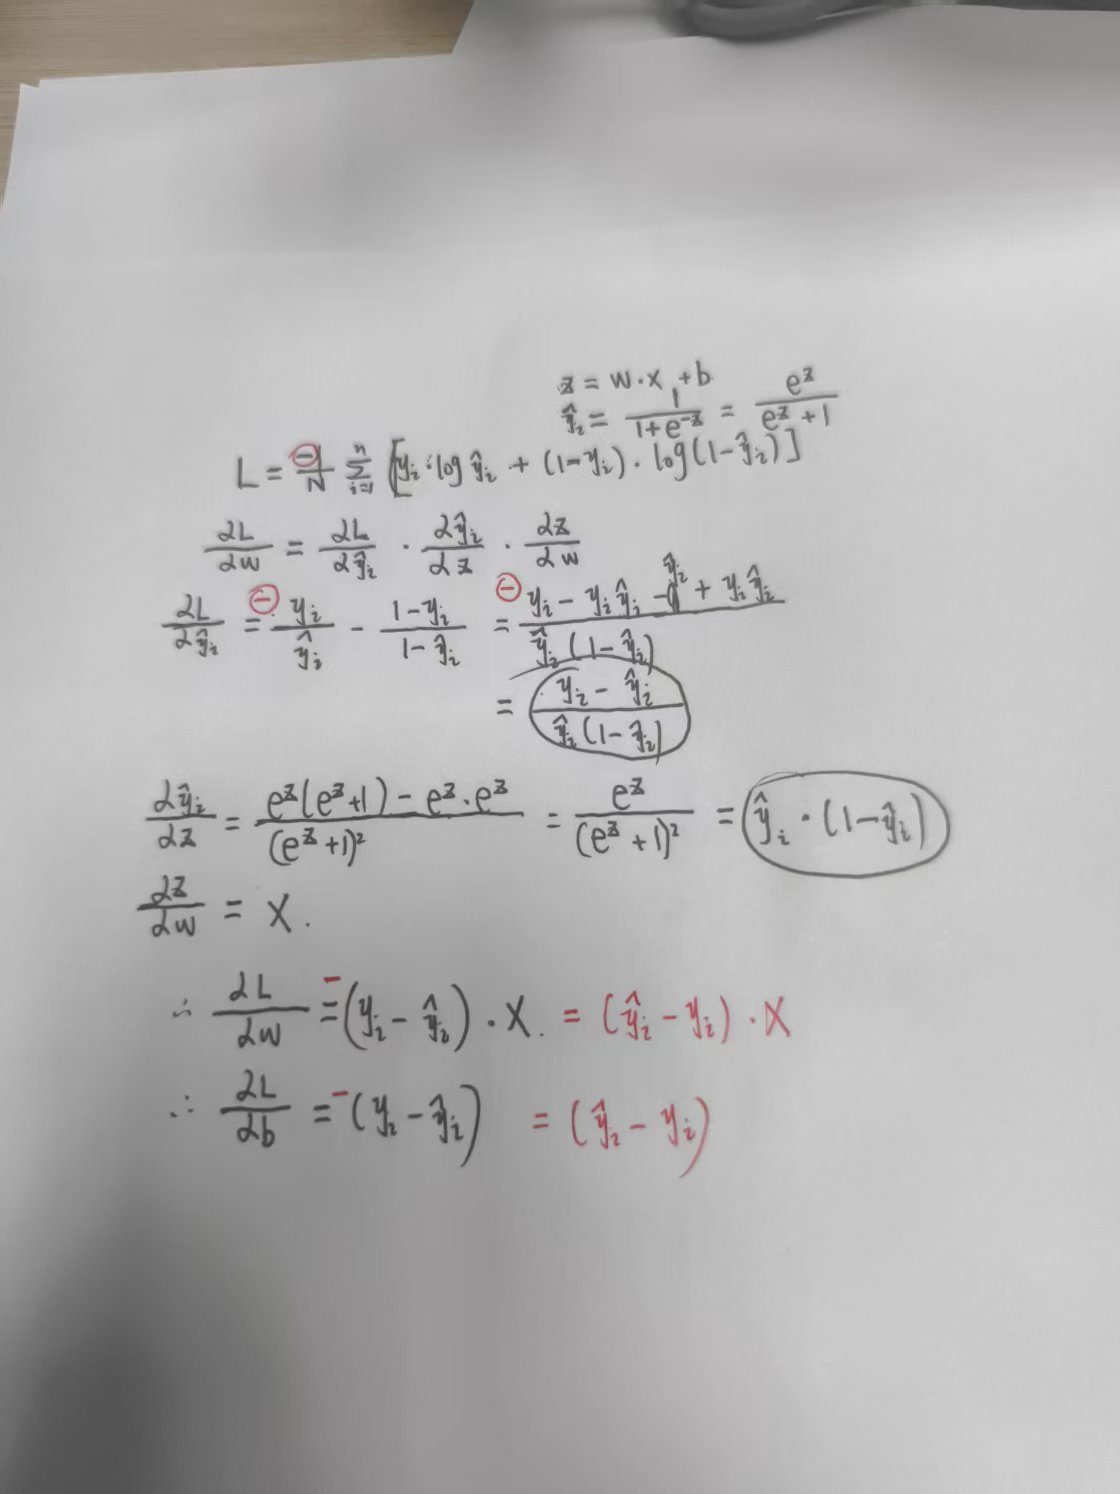 z = w·x + b
ŷᵢ = 1/(1+e^(-z)) = e^z/(e^z + 1)
L = -1/N Σ_{i=1}^{n} [yᵢ·log ŷᵢ + (1-yᵢ)·log(1-ŷᵢ)]
∂L/∂w = ∂L/∂ŷᵢ · ∂ŷᵢ/∂z · ∂z/∂w
∂L/∂ŷᵢ = ⊖ yᵢ/ŷᵢ - (1-yᵢ)/(1-ŷᵢ) = ⊖ (yᵢ - yᵢŷᵢ - ŷᵢ + yᵢŷᵢ)/(ŷᵢ(1-ŷᵢ))
= (yᵢ - ŷᵢ)/(ŷᵢ(1-ŷᵢ))
∂ŷᵢ/∂z = (e^z(e^z+1) - e^z·e^z)/(e^z+1)² = e^z/(e^z+1)² = ŷᵢ·(1-ŷᵢ)
∂z/∂w = X.
∴ ∂L/∂w = -(yᵢ - ŷᵢ)·X. = (ŷᵢ - yᵢ)·X
∴ ∂L/∂b = -(yᵢ - ŷᵢ) = (ŷᵢ - yᵢ)